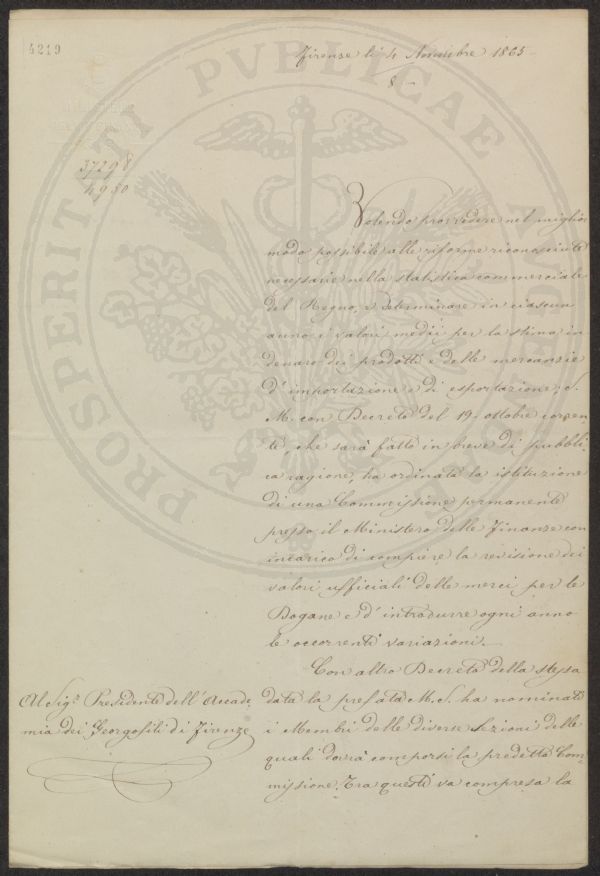 4219
Firenze li 4 Novembre 1865
8 —
37298
4950
Volendo provvedere nel miglior
modo possibile alle riforme riconosciute
necessarie nella statistica commerciale
del Regno, e determinare in ciascun
anno i valori medii per la stima in
denaro dei prodotti e delle mercanzie
d'importazione e di esportazione, S.
M. con Decreto del 19. ottobre corren-
te, che sarà fatto in breve di pubbli-
ca ragione, ha ordinato la istituzione
di una Commissione permanente
presso il Ministero delle Finanze con
incarico di compiere la revisione dei
valori ufficiali delle merci per le
Dogane e d'introdurre ogni anno
le occorrenti variazioni.
Con altro Decreto della stessa
data la prefata M. S. ha nominati
i Membri delle diverse Sezioni delle
quali dovrà comporsi la predetta Com-
missione. Tra questi va compresa la
Al Sig.r Presidente dell'Accade
mia dei Georgofili di Firenze
PROSPERITATI PVBLICAE